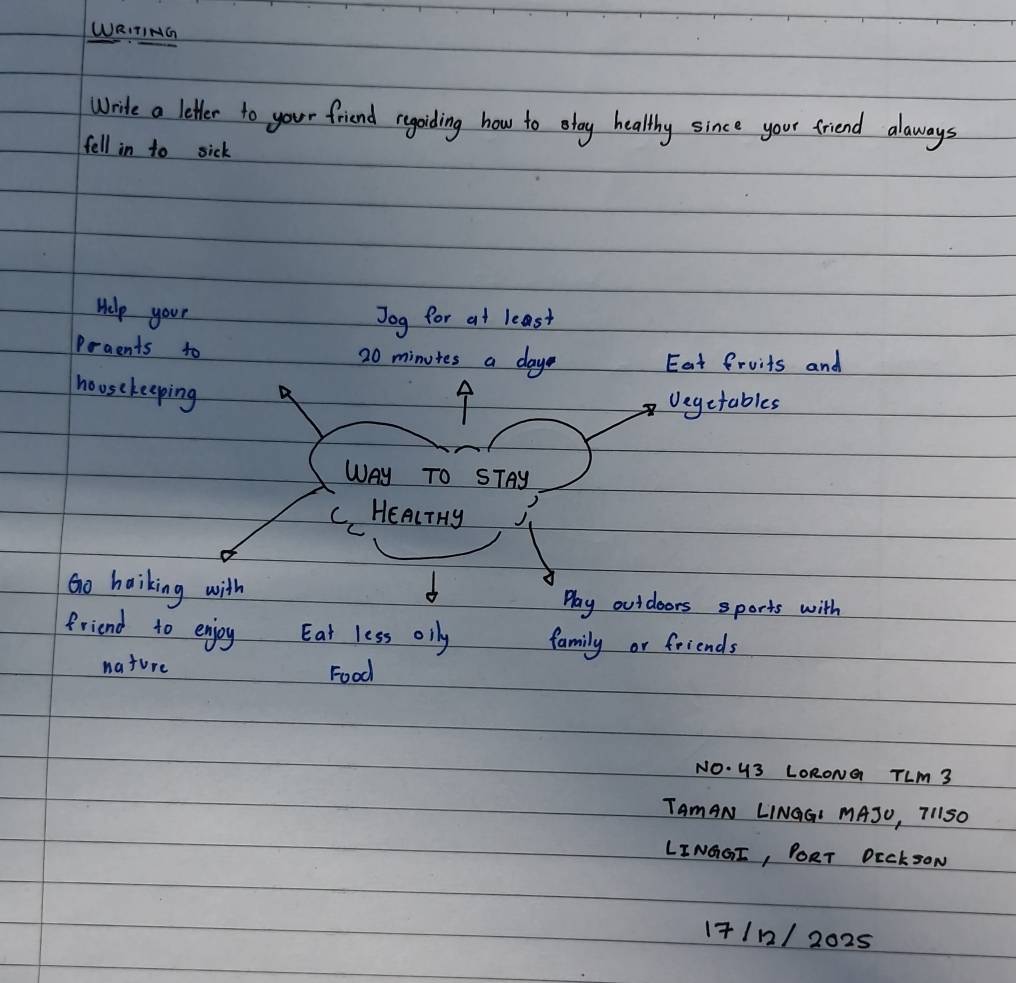 WRITING
Write a letter to your friend regoiding how to stay healthy since your friend alaways
fell in to sick
Help your
Praents to
housekeeping
Jog for at least
20 minutes a day
Eat fruits and
Vegetables
WAY TO STAY
HEALTHY
Go haiking with
friend to enjoy
nature
Eat less oily
Food
Play outdoors sports with
family or friends
NO. 43 LORONG TLM 3
TAMAN LINGGI MAJU, 71150
LINGGI, PORT DICKSON
17/12/2025